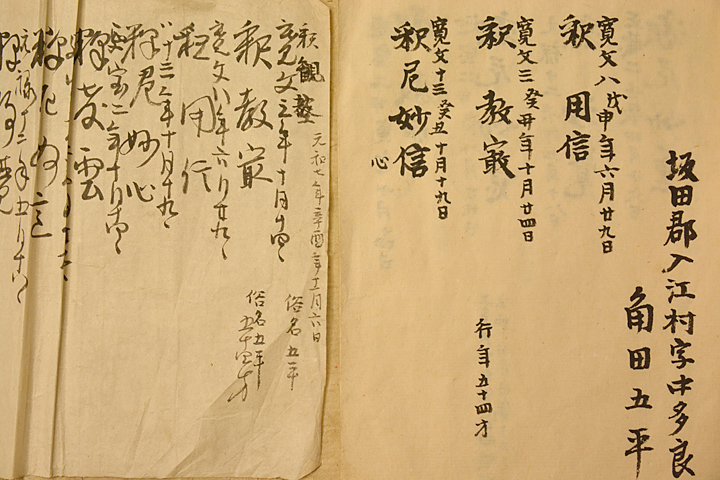 坂田郡入江村字中多良
角田五平
寛文八戊申年六月廿九日
釈用信
寛文三癸卯年十月廿四日
釈教巌
行年五十四才
寛文十三癸丑十月十九日
釈尼妙信
心
元和七年辛酉年十一月六日
釈観
俗名五平
寛文三年十月廿四日
釈教巌
俗名五平
五十四才
寛文八年六月廿九日
釈用信
十三年十月十九日
釈尼妙心
二年十月
釈
釈尼妙